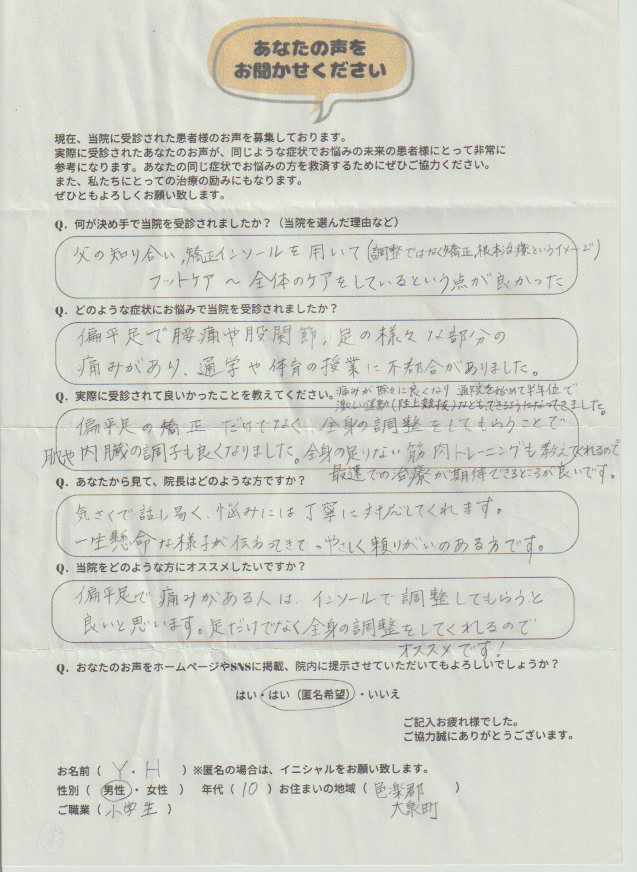 あなたの声を
お聞かせください
現在、当院に受診された患者様のお声を募集しております。
実際に受診されたあなたのお声が、同じような症状でお悩みの未来の患者様にとって非常に
参考になります。あなたの同じ症状でお悩みの方を救済するためにぜひご協力ください。
また、私たちにとっての治療の励みにもなります。
ぜひともよろしくお願い致します。
Q．何が決め手で当院を受診されましたか？（当院を選んだ理由など）
父の知り合い，矯正インソールを用いて（調整ではなく矯正，根本治療というイメージ）
フットケア〜全体のケアをしているという点が良かった
Q．どのような症状にお悩みで当院を受診されましたか？
偏平足で腰痛や股関節、足の様々な部分の
痛みがあり、通学や体育の授業に不都合がありました。
Q．実際に受診されて良いかったことを教えてください。
痛みが除々に良くなり 通院を始めて半年位で
激しい運動（陸上競技）などもできるようになってきました。
偏平足の矯正だけでなく、全身の調整をしてもらうことで
肌や内臓の調子も良くなりました。全身の足りない筋肉トレーニングも教えてくれるので
最速での治療が期待できるところが良いです。
Q．あなたから見て、院長はどのような方ですか？
気さくで話し易く、悩みには丁寧に対応してくれます。
一生懸命な様子が伝わってきて、やさしく頼りがいのある方です。
Q．当院をどのような方にオススメしたいですか？
偏平足で痛みがある人は、インソールで調整してもらうと
良いと思います。足だけでなく全身の調整をしてくれるので
オススメです！
Q．おなたのお声をホームページやSNSに掲載、院内に提示させていただいてもよろしいでしょうか？
はい・はい（匿名希望）・いいえ
ご記入お疲れ様でした。
ご協力誠にありがとうございます。
お名前（ Y・H ）※匿名の場合は、イニシャルをお願い致します。
性別（ 男性・女性 ） 年代（ 10 ）お住まいの地域（ 邑楽郡 ）
大泉町
ご職業（ 小学生 ）